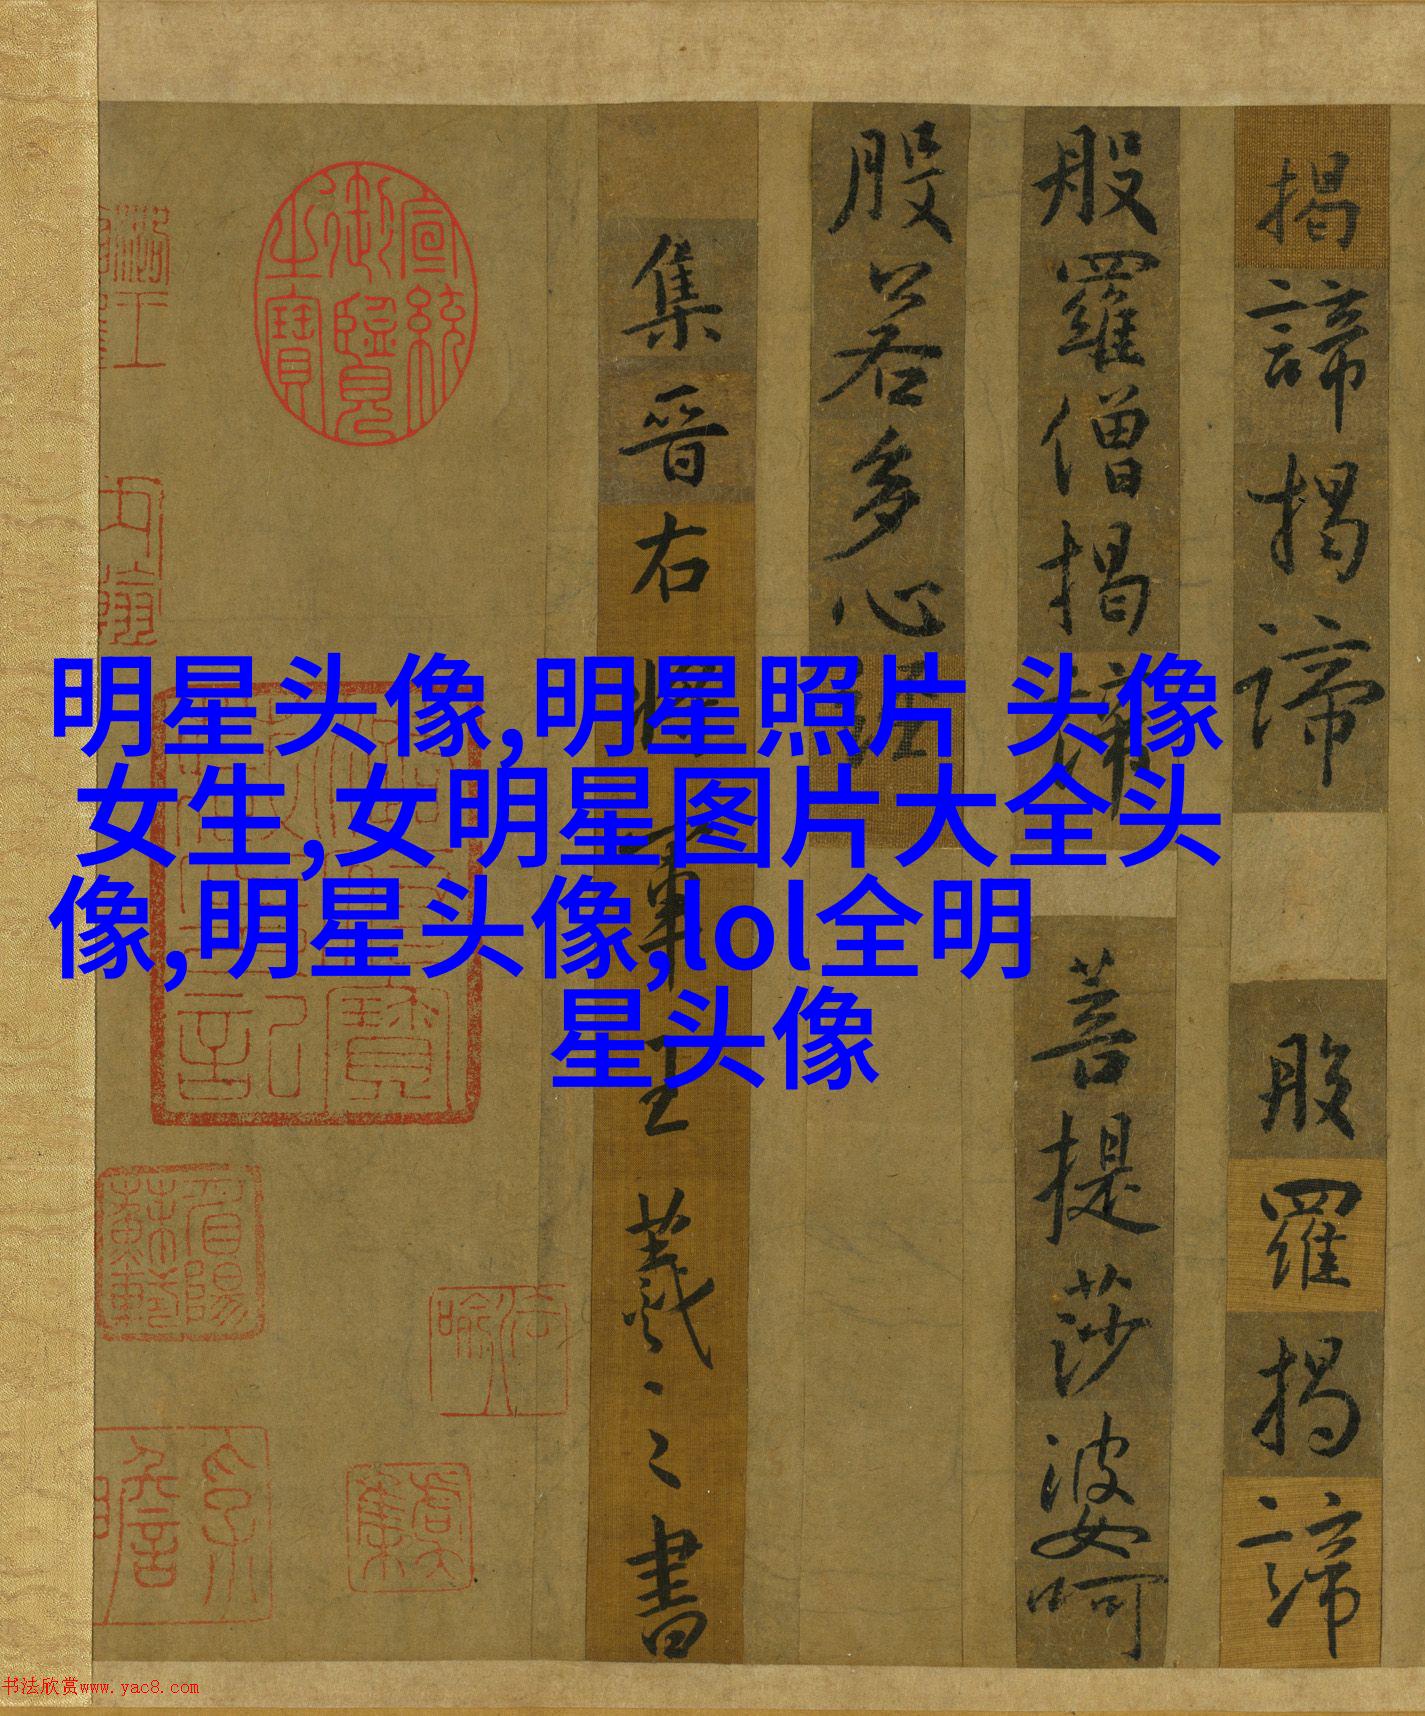 明星头像,明星照片 头像
女生,女明星图片大全头
像,明星头像,lol全明
星头像
揭諦揭諦 般羅揭諦
般羅僧揭諦 菩提莎婆呵
般若多心經
集晉右將軍王羲之書
宣統御覽之寶
书法欣赏www.yac8.com